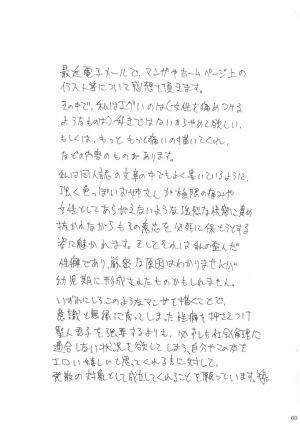 最近電子メールで、マンガやホームページ上の
イラスト等について感想を頂きます。
その中で、私はエグいのは(女性を痛めつける
ようなものは)好きではないからやめて欲しい、
もしくは、もっともっと痛いの描いてくれ、
などの内容のものがあります。
私は同人誌の文章の中でもよく書いているように、
強く色っぽいお姉さんが極限の痛みや
女性としてあらがえないような強烈な快感に責め
抜かれながらもその意志を必死に保とうとする
姿に魅かれます。そしてそれは私の歪んだ
性癖であり、厳密な原因はわかりませんが
幼児期に形成されたものかもしれません。
いずれにしろこのようなマンガを描くことで、
意識と無縁に育ってしまった性癖を押さえつけ
聖人君子を強要するよりも、必ずしも社会倫理に
適合しない状況を欲してしまう、自分やこの本を
エロい嬉しいと思ってくれる方に対して、
発散の対象として成立してくれることを願っています。
69